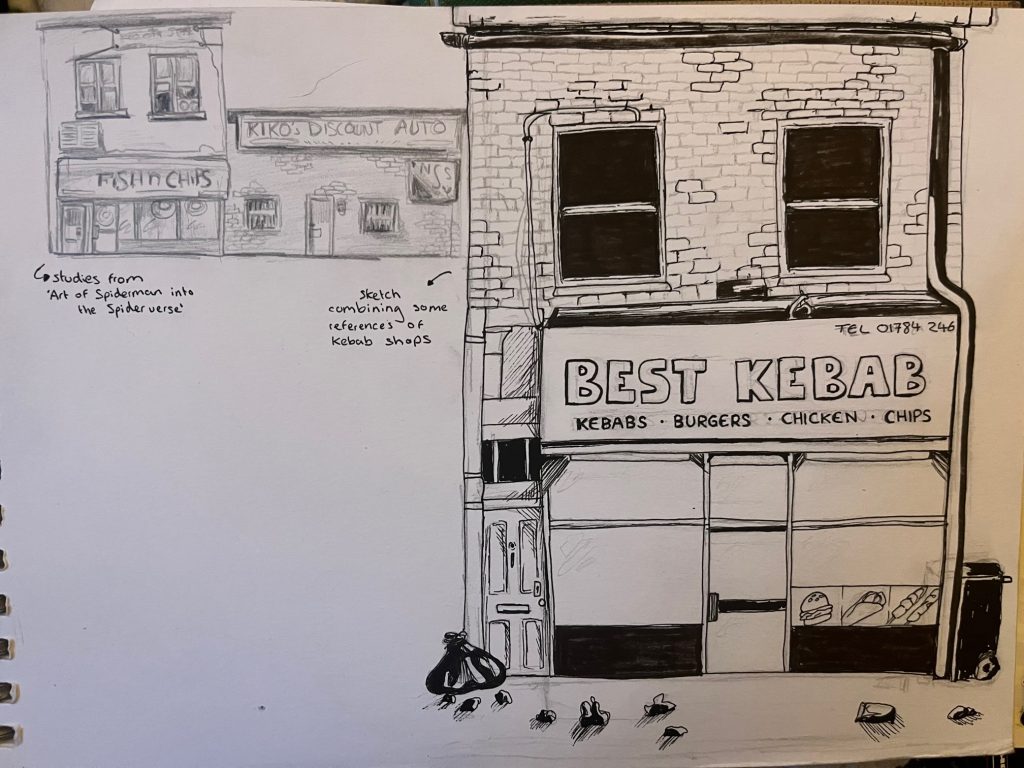 KIKO'S DISCOUNT AUTO
FISH N CHIPS
studies from
'Art of Spiderman into
the Spiderverse'
sketch
combining some
references of
kebab shops
TEL 01784 246
BEST KEBAB
KEBABS · BURGERS · CHICKEN · CHIPS